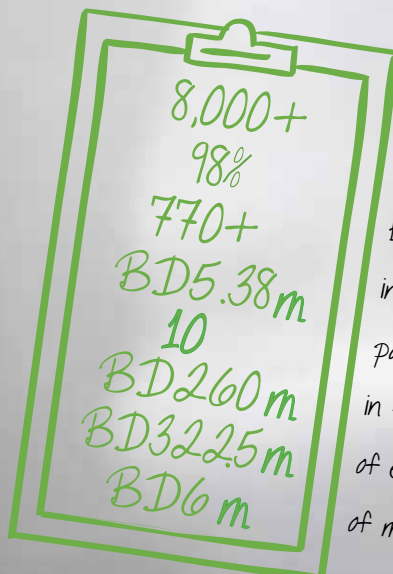 8,000+
98%
770+
BD5.38m
10
BD260m
BD322.5m
BD6m
in
of
of